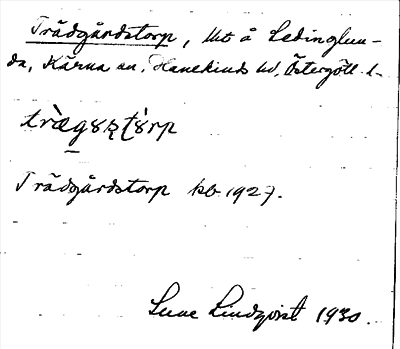 Trädgårdstorp, Utj å Ledinglun-
da, Kärna sn, Hanekinds hd, Östergötl. l.
tràgɤʂʈɤ̀rp
Trädgårdstorp kb 1927.
Sune Lindqvist 1930.